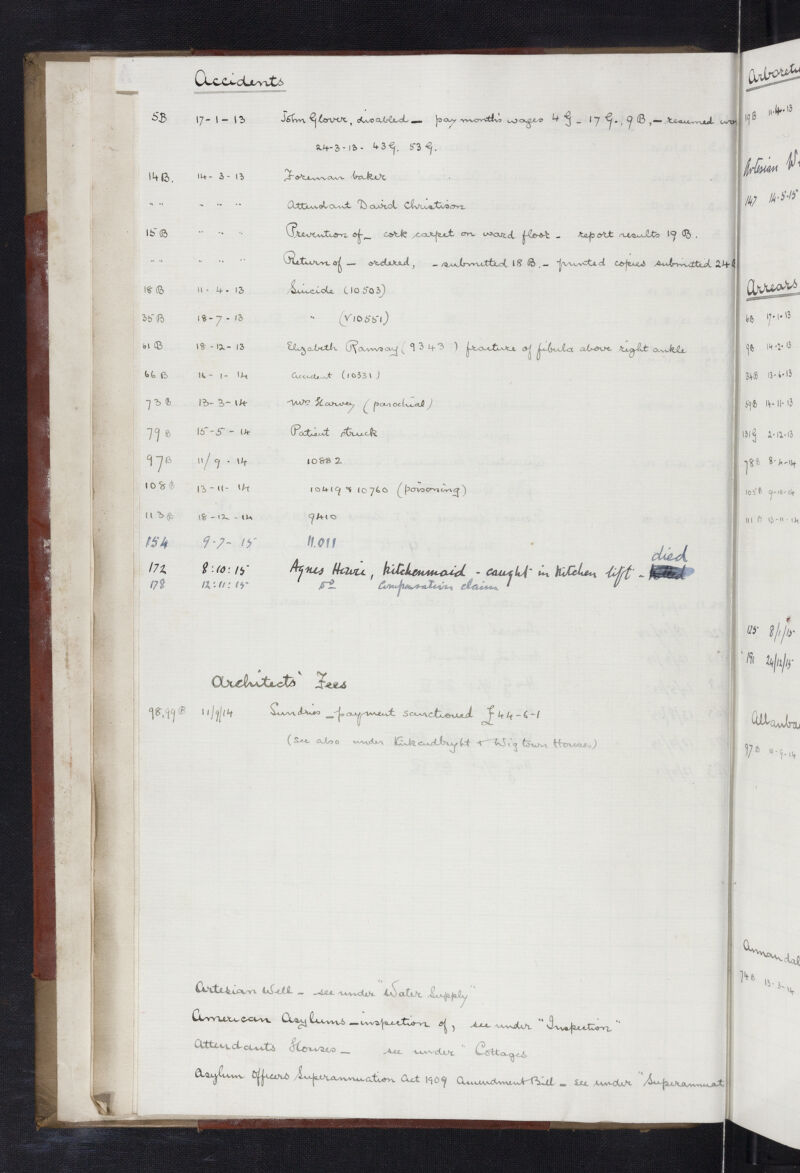 Accidents
5B 17-1-13 John Glover, disabled — pay month's wages 4 G - 17 G., 9 B, — resumed
24-3-13 - 43 G. 53 G.
14 B. 14-3-13 Foreman baker
" " " " " Attendant David Christison
15 B " " " Prevention of — cork carpet on ward floor - report results 19 B.
" " " " " Return of — ordered, - submitted 18 B. - printed copies submitted 24
18 B 11-4-13 Suicide (10503)
35 B 18-7-13 " (10551)
61 B 18-12-13 Elizabeth Ramsay (9343) fracture of fibula above right ankle
66 B 16-1-14 Accident (10331)
73 B 13-3-14 Mrs Harvey (parochial)
79 B 15-5-14 Patient struck
97 B 11/9-14 10882
108 B 13-11-14 10419 & 10760 (poisoning)
113 B 18-12-14 9410
154 9-7-15 11.011
died
172 8:10:15 Agnes Howie, Kitchenmaid - caught in Kitchen lift -
178 12:11:15 Do Compensation claim
Architects' Fees
98,99 B 11/9/14 Sundries — payment sanctioned £44-6-1
(see also under Kirkcudbright & Wigtown Houses)
Artesian Well — see under "Water Supply"
American Asylums — inspection of, see under "Inspection"
Attendants Houses — see under "Cottages
Asylum Officers Superannuation Act 1909 Amendment Bill — see under "Superannuat
Arboretu
19 B 11-4-13
Artesian W
147 14-5-15
Arrears
6B 17-1-13
9B 14-2-13
34B 13-6-13
59B 14-11-13
131 G 2-12-13
78 B 8-4-14
105 B 9-10-14
111 B 13-11-14
125 8/1/15
191 24/12/15
97 B 11-9-14
Annandal
74 B 13-3-14